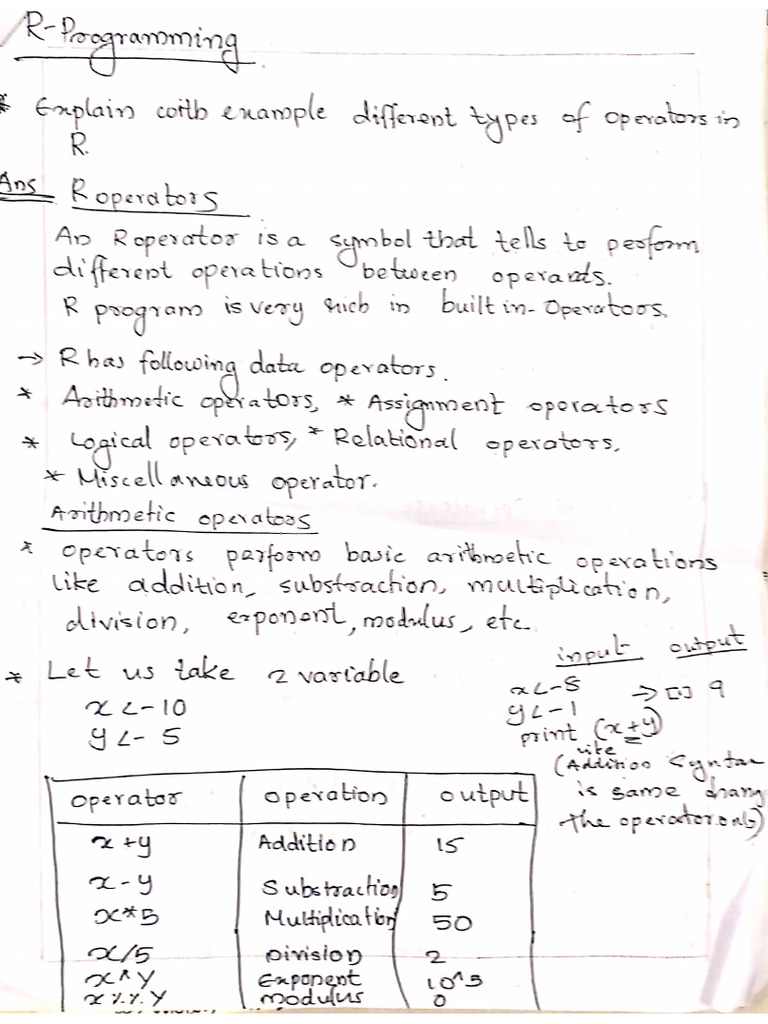 R-Programming
* Explain with example different types of operators in
R.
Ans R operators
An R operator is a symbol that tells to perform
different operations between operands.
R program is very rich in built in- Operators.
→ R has following data operators.
* Arithmetic operators, * Assignment operators
* Logical operators, * Relational operators.
* Miscellaneous operator.
Arithmetic operators
* operators perform basic arithmetic operations
like addition, substraction, multiplication,
division, exponent, modulus, etc.
* Let us take 2 variable
x <- 10
y <- 5
input output
x <- 8 → [1] 9
y <- 1
print (x+y)
like
(Addition Syntax
is same chang
the operator only)
operator operation output
x+y Addition 15
x-y Substraction 5
x*5 Multiplication 50
x/5 Division 2
x^y Exponent 10^5
x%%y modulus 0